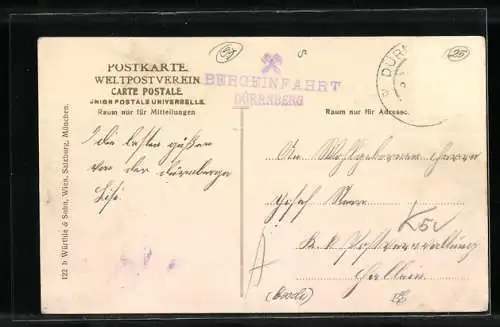 POSTKARTE.
WELTPOSTVEREIN
CARTE POSTALE
UNION POSTALE UNIVERSELLE.
Raum nur für Mitteilungen
BERGEINFAHRT
DÜRRNBERG
Raum nur für Adresse.
DÜRR
25
122 b Würthle & Sohn, Wien, Salzburg, München.
Die besten
von der Dürrnberger
Lisi
An Wohlgeboren Herrn
Josef
K. K. Postverwaltung
Hallein